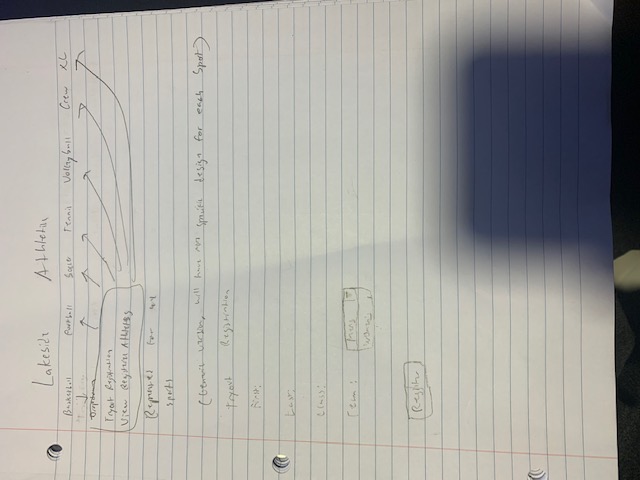 Lakeside Athletics
Basketball Football Soccer Tennis Volleyball Crew XC
Tryout Registration
View Registered Athletes
for
sports
( version, will have more design for each Sport)
Tryout Registration
First:
Last:
Class:
Team: Mens
Womens
Register